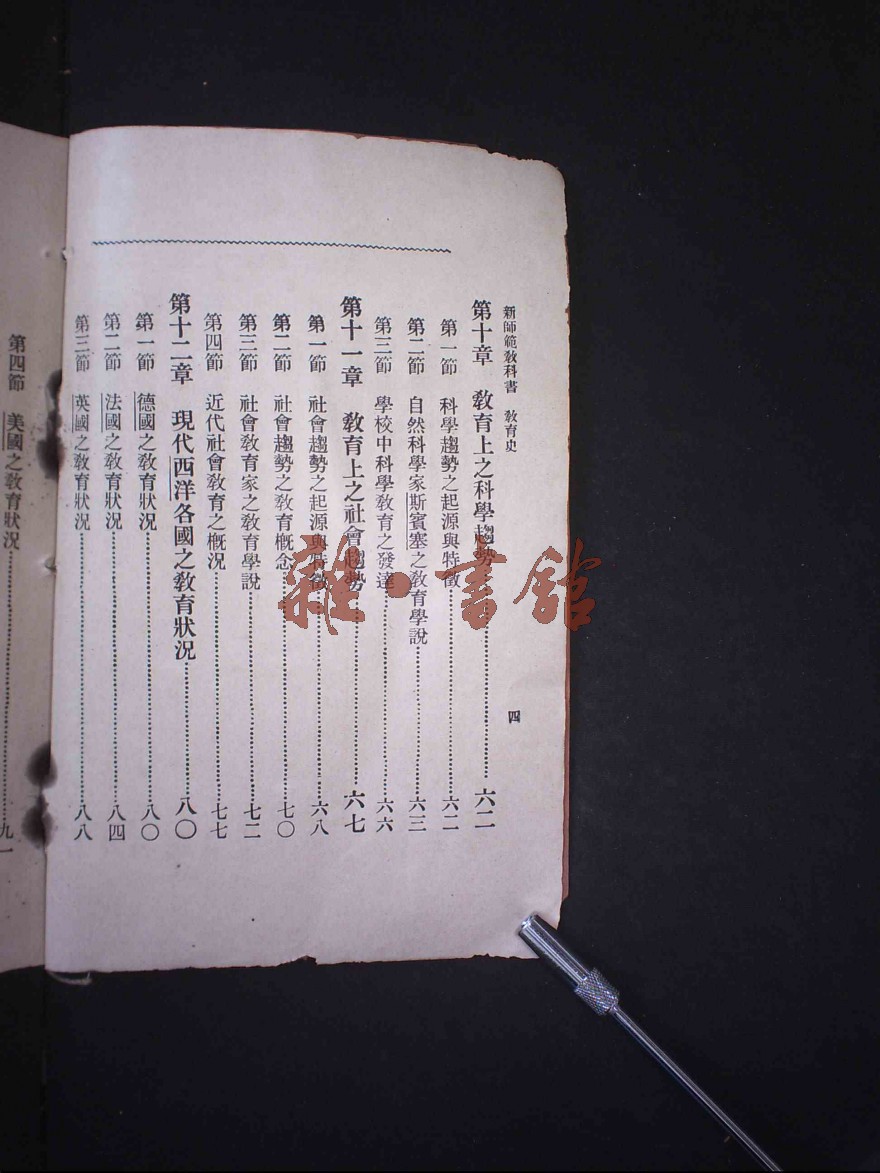 新師範教科書　教育史
四
第十章　教育上之科學趨勢……六二
第一節　科學趨勢之起源與特徵……六二
第二節　自然科學家斯賓塞之教育學說……六三
第三節　學校中科學教育之發達……六六
第十一章　教育上之社會趨勢……六七
第一節　社會趨勢之起源與特徵……六八
第二節　社會趨勢之教育概念……七〇
第三節　社會教育家之教育學說……七二
第四節　近代社會教育之概況……七七
第十二章　現代西洋各國之教育狀況……八〇
第一節　德國之教育狀況……八〇
第二節　法國之教育狀況……八四
第三節　英國之教育狀況……八八
第四節　美國之教育狀況……九一
雜·書館